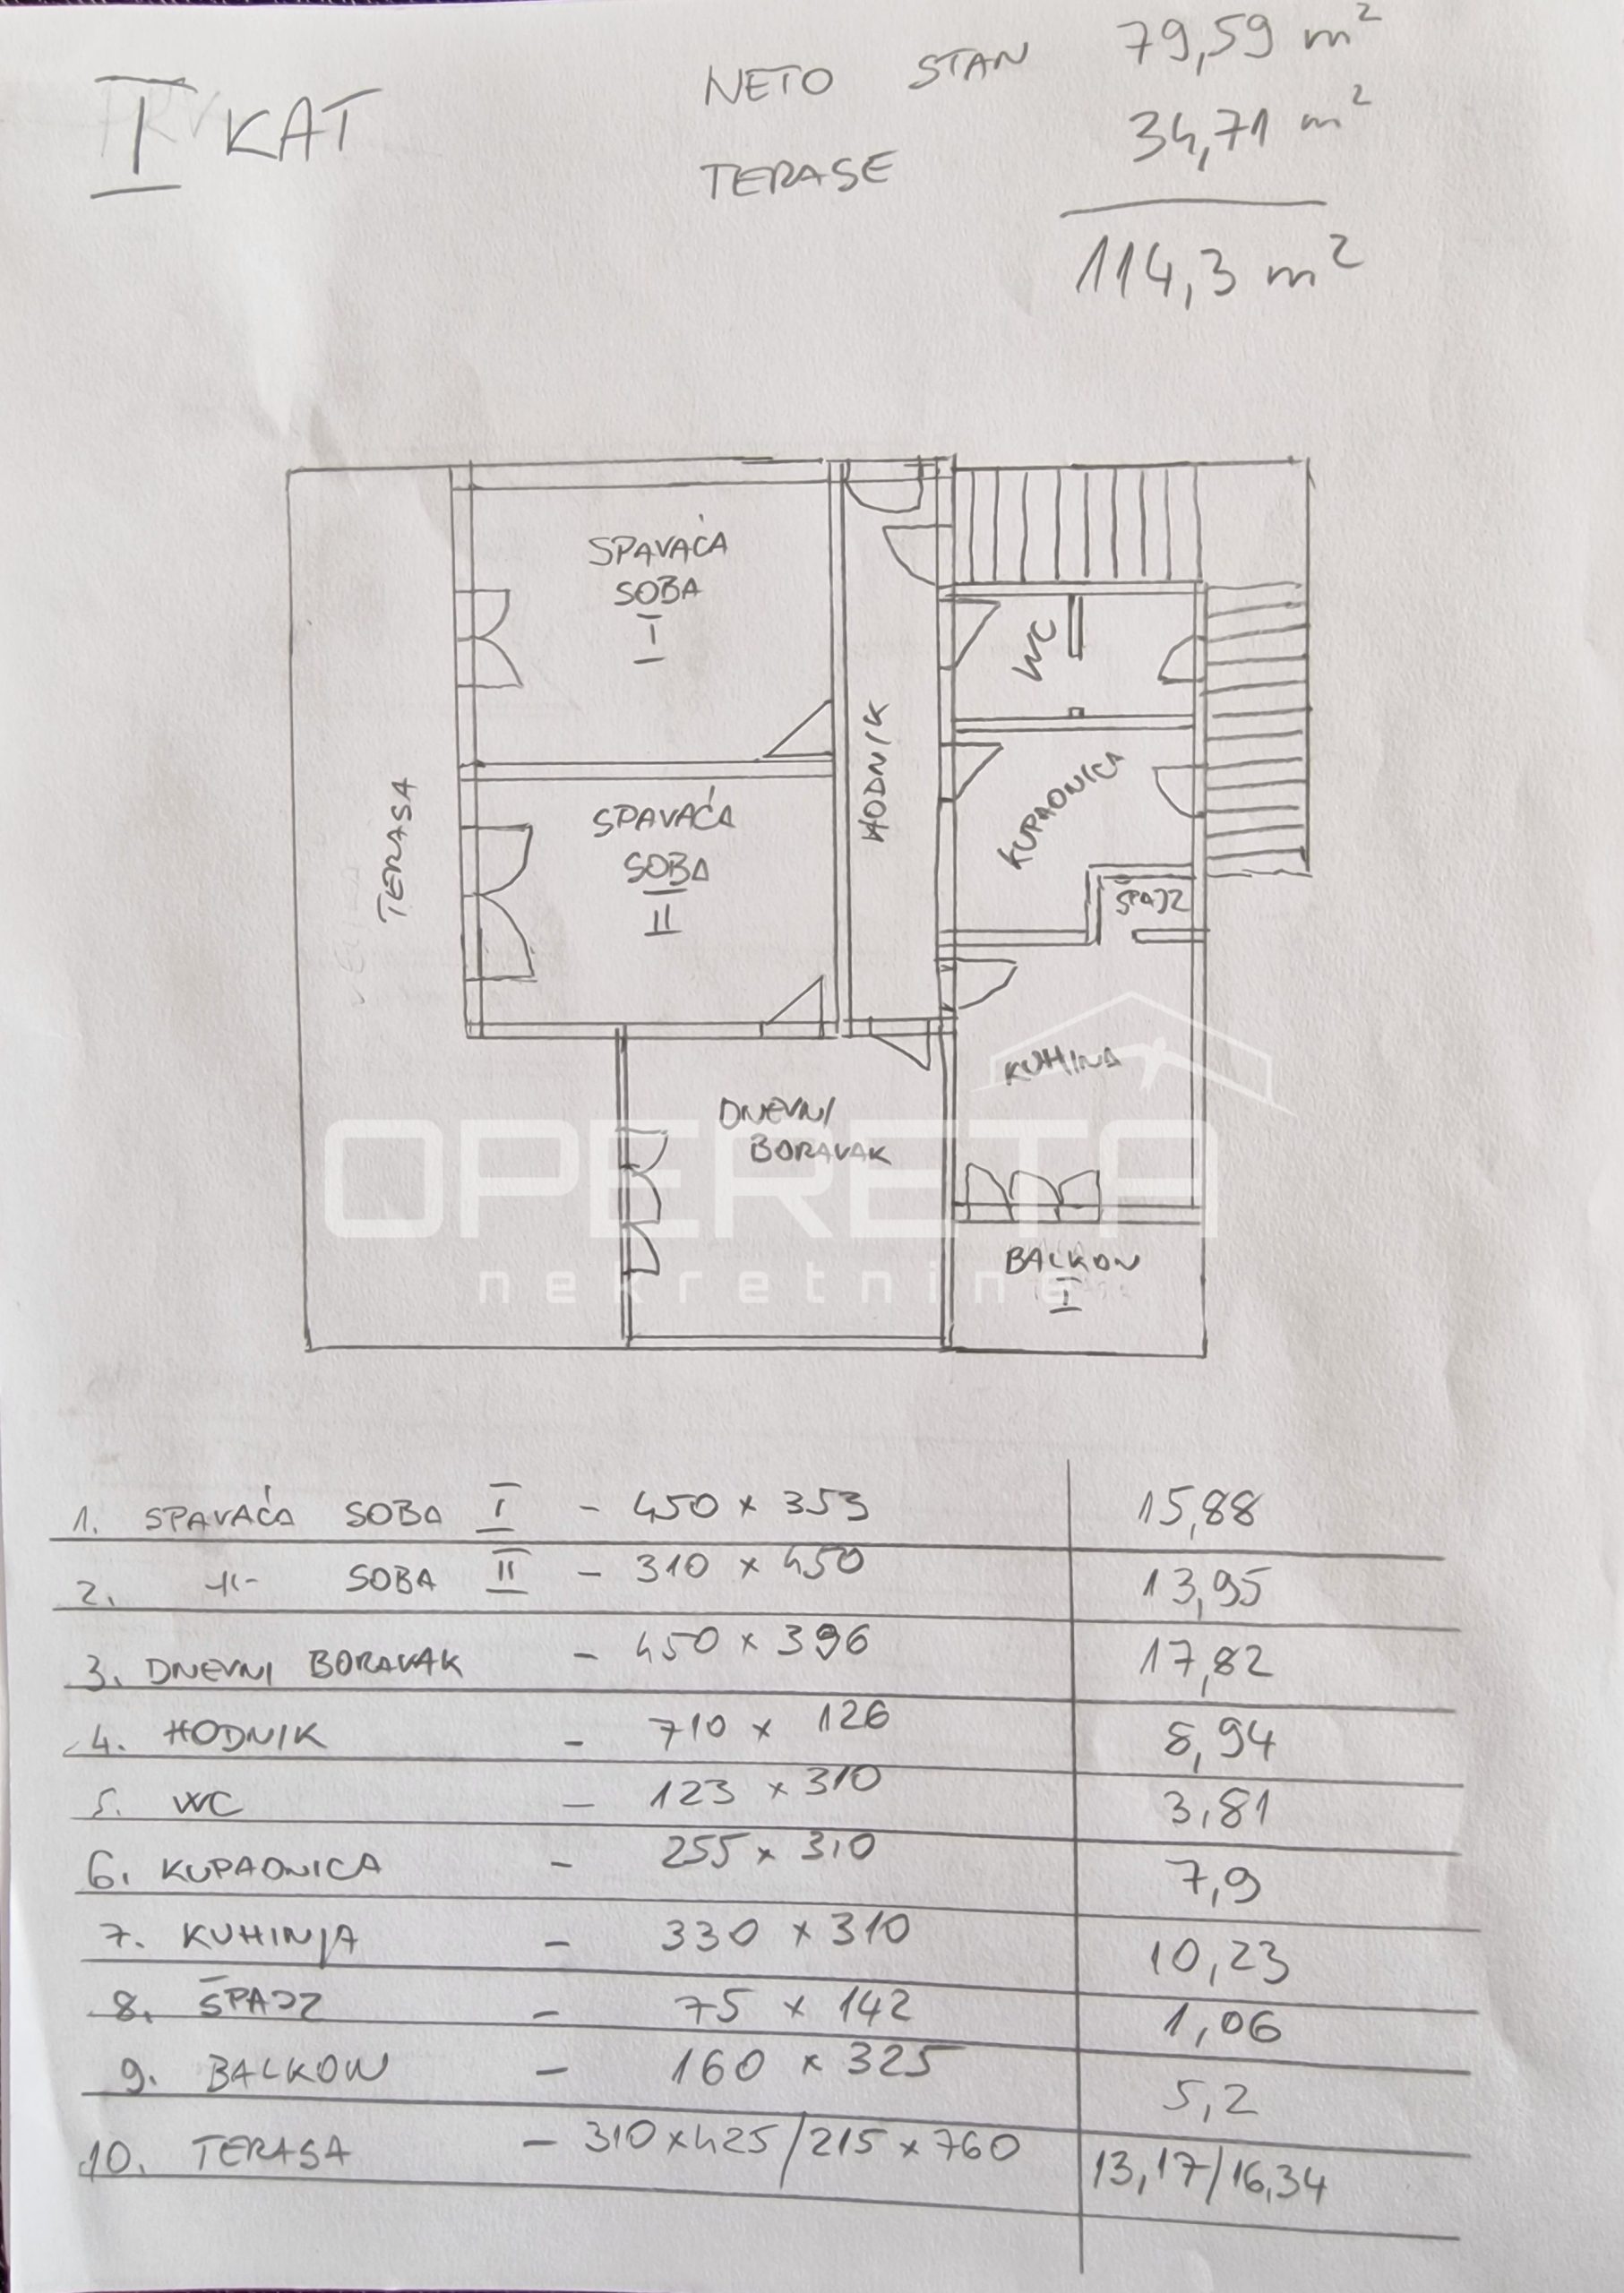 I KAT
NETO STAN 79,59 m²
TERASE 34,71 m²
114,3 m²
SPAVAĆA
SOBA
I
WC
HODNIK
KUPAONICA
TERASA
SPAVAĆA
SOBA
II
ŠPAJZ
KUHINA
DNEVNI
BORAVAK
OPERETA
nekretnine
BALKON
I
1. SPAVAĆA SOBA I - 450 x 353 15,88
2. -11- SOBA II - 310 x 450 13,95
3. DNEVNI BORAVAK - 450 x 396 17,82
4. HODNIK - 710 x 126 8,94
5. WC - 123 x 310 3,81
6. KUPAONICA - 255 x 310 7,9
7. KUHINJA - 330 x 310 10,23
8. ŠPAJZ - 75 x 142 1,06
9. BALKON - 160 x 325 5,2
10. TERASA - 310 x 425 / 215 x 760 13,17/16,34